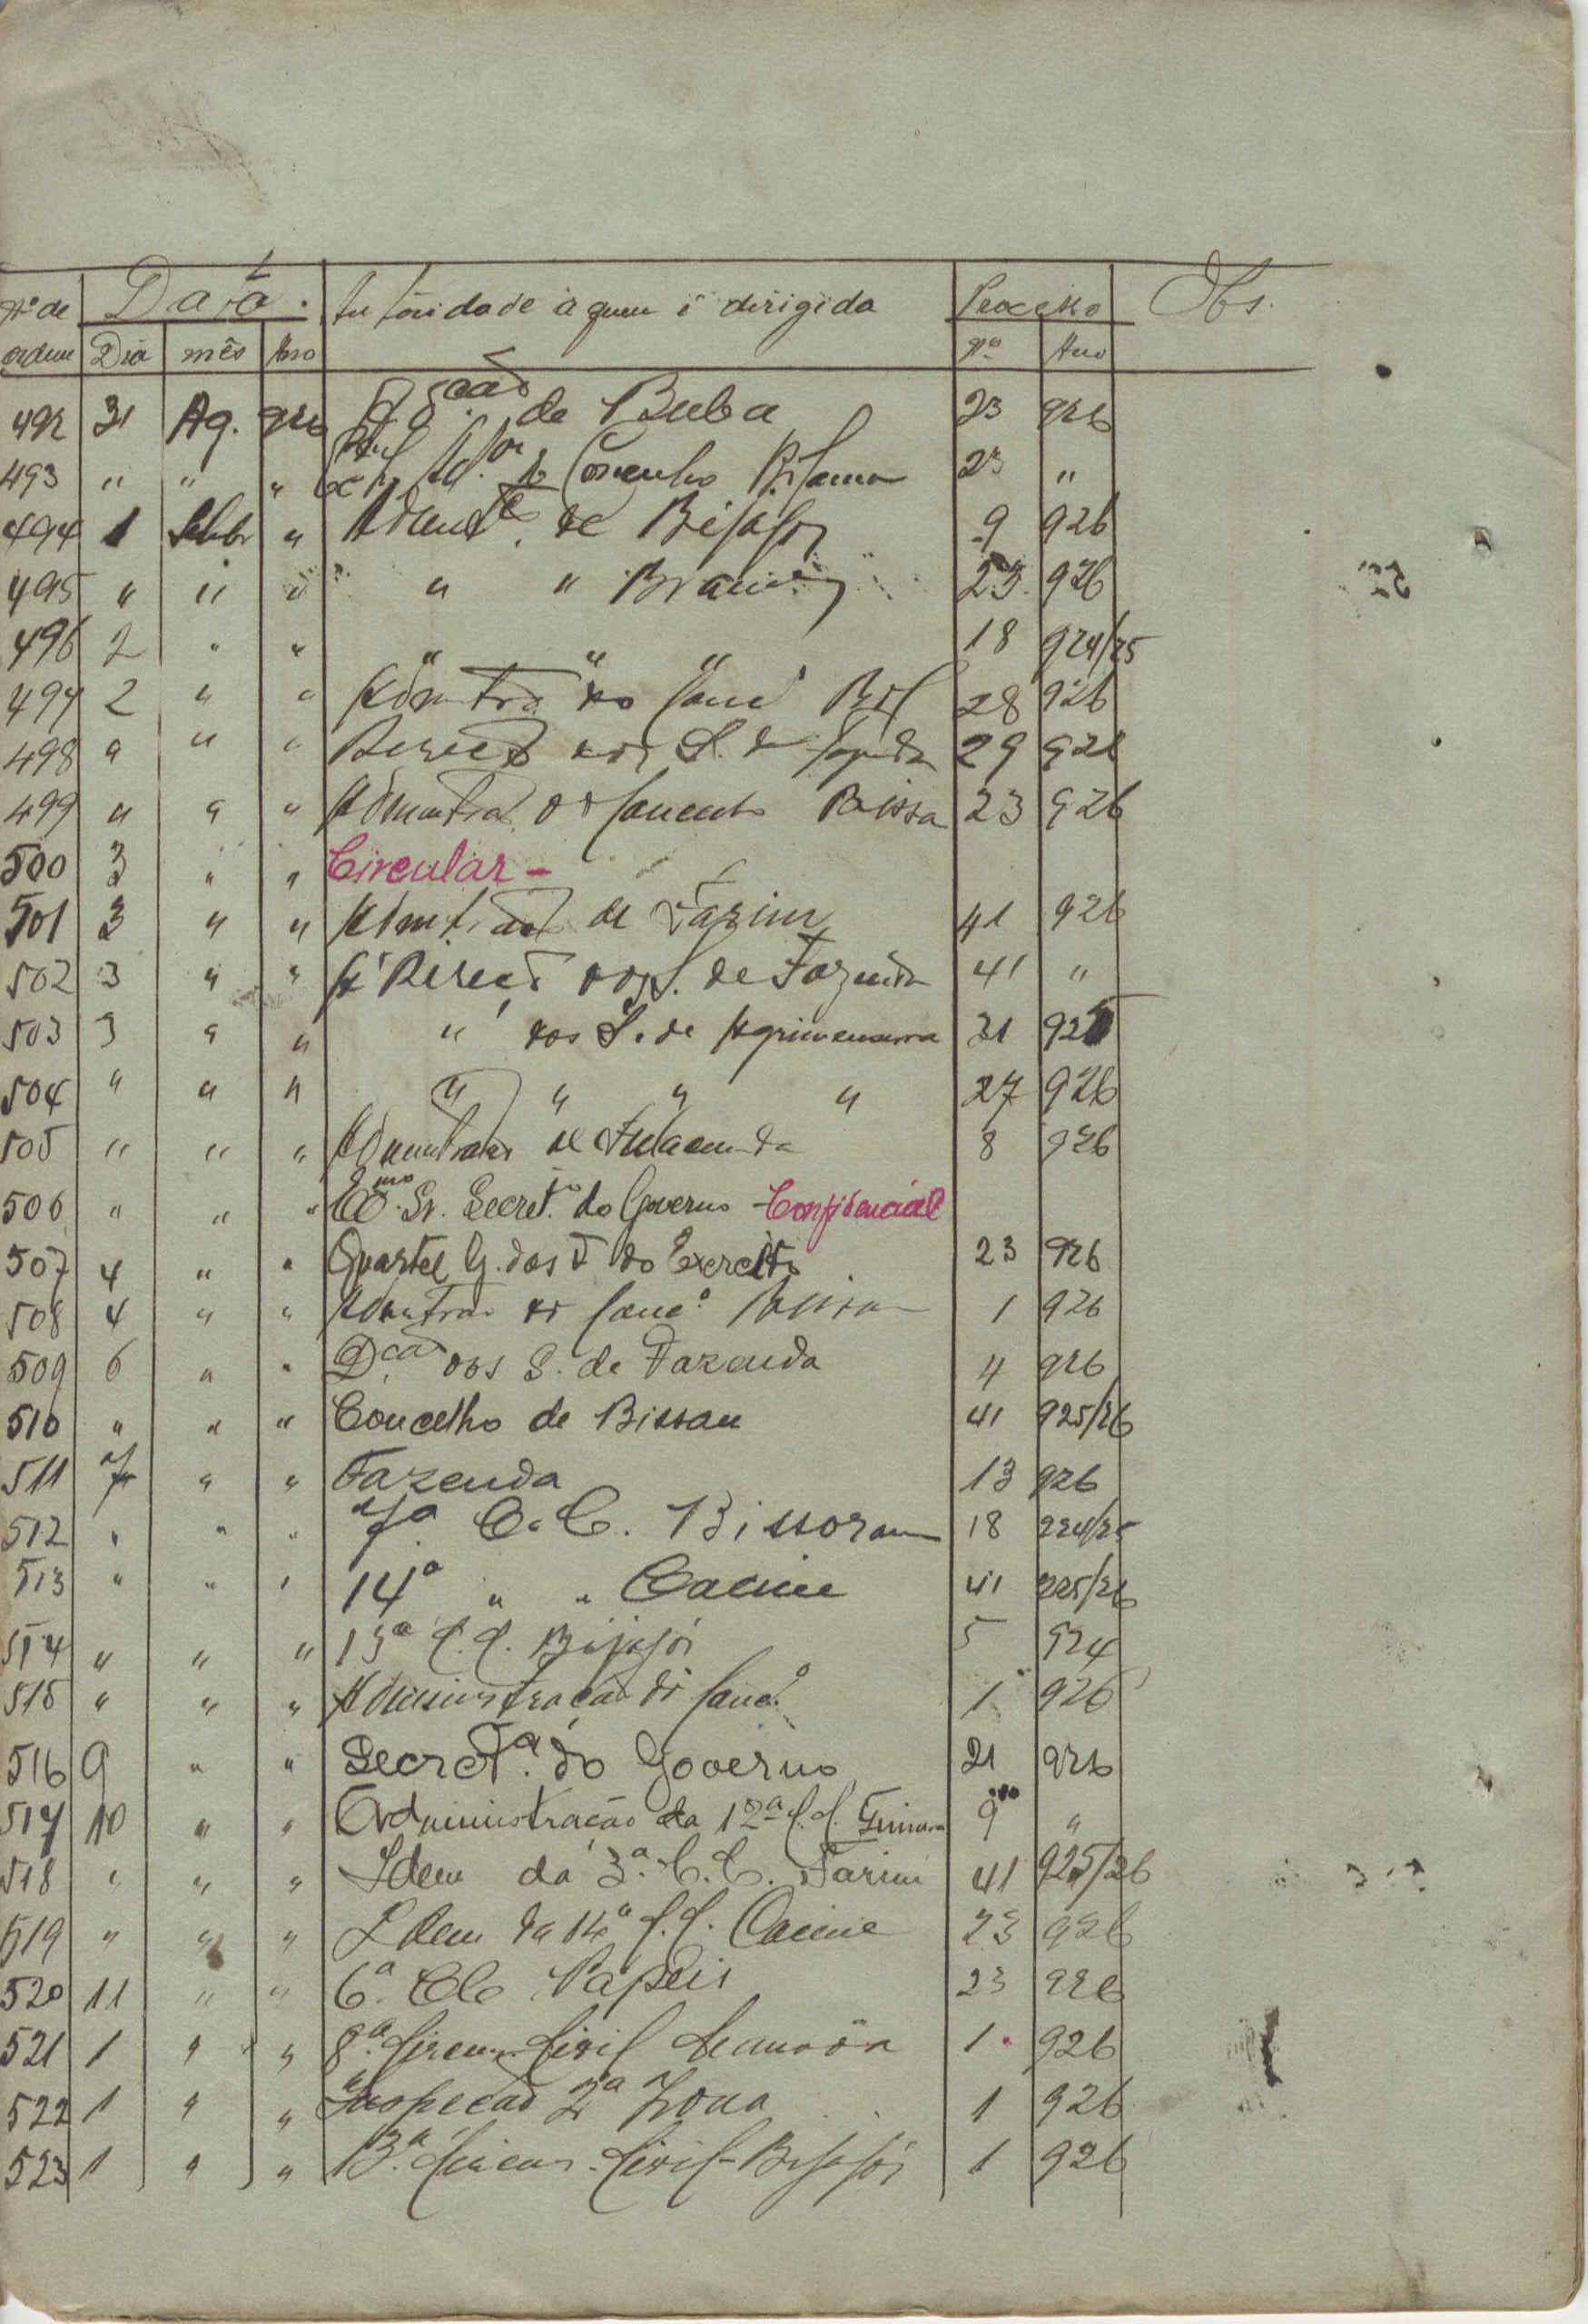 Nº de Data. Autoridade a quem é dirigida Processo Obs.
ordem Dia mês Ano Nº Ano
492 31 Ag. 926 de Buba 23 926
493 " " " Concelho 23 "
494 1 Stbr " de Bijagós 9 926
495 " " " " " 23 926
496 2 " " " " " 18 924/25
497 2 " " 28 926
498 " " " 29 926
499 " " " Bissa 23 926
500 3 " " Circular -
501 3 " " de Farim 41 926
502 3 " " de Fazenda 41 "
503 3 " " " dos S. de Agrimensura 21
504 " " " " " " " 27 926
505 " " " de Fulacunda 8 926
506 " " " Exmo. Sr. Secret.º do Governo - Confidencial
507 4 " " Quartel G. das F do Exercito 23 926
508 4 " " 1 926
509 6 " " D.ção dos S. de Fazenda 4 926
510 " " " Concelho de Bissau 41 925/26
511 7 " " Fazenda 13 926
512 " " " 7ª C. C. Bissoram 18 924/25
513 " " " 14ª " " Cacine 41 925/26
514 " " " 13ª C. C. Bijagós 5 924
515 " " " Administração do Conc.º 1 926
516 9 " " Secret.ª do Governo 21 926
517 10 " " Administração da 12ª C. C. 9 "
518 " " " Idem da 3ª. C. C. Farim 41 925/26
519 " " " Idem da 14ª C. C. Cacine 23 926
520 11 " " 6ª. CC Papeis 23 926
521 1 " " 8ª. Circun. Civil Mansôa 1 926
522 1 " " Inspecão 2ª Zona 1 926
523 1 " " 13ª. Circun. Civil - Bijagós 1 926